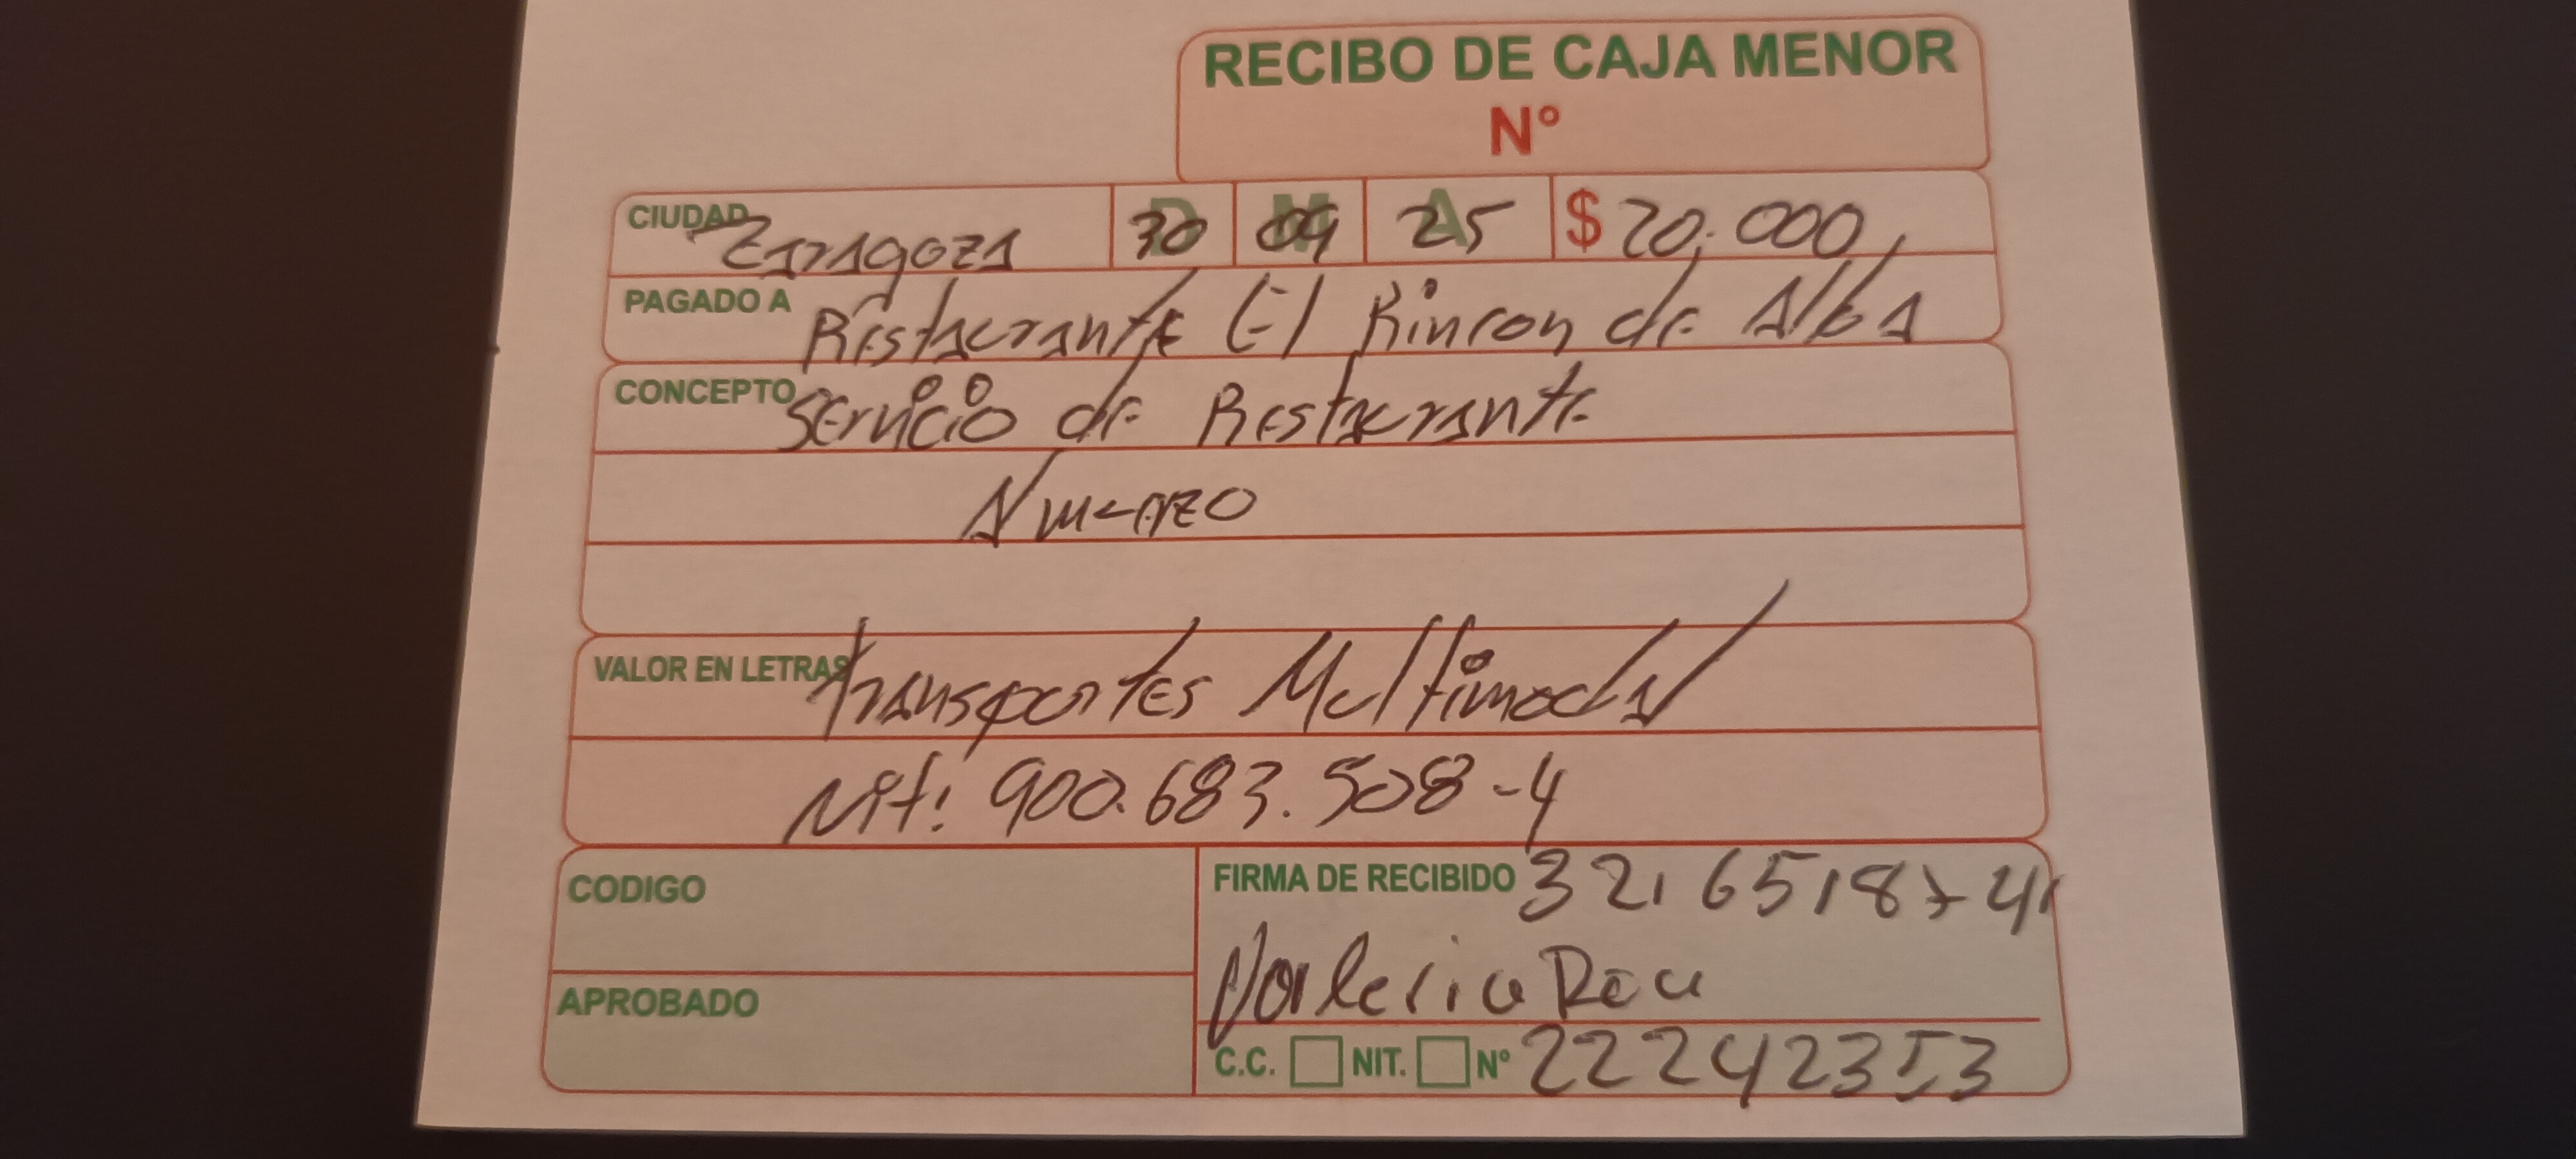 RECIBO DE CAJA MENOR
Nº
CIUDAD Zaragoza D 30 M 09 A 25 $ 20.000
PAGADO A Restaurante El Rincon de Alba
CONCEPTO Servicio de Restaurante
Almuerzo
VALOR EN LETRAS Transportes Multimodal
Nit: 900.683.508-4
CODIGO
FIRMA DE RECIBIDO 321 6518741
Valeria
APROBADO
C.C. NIT. Nº 22242353